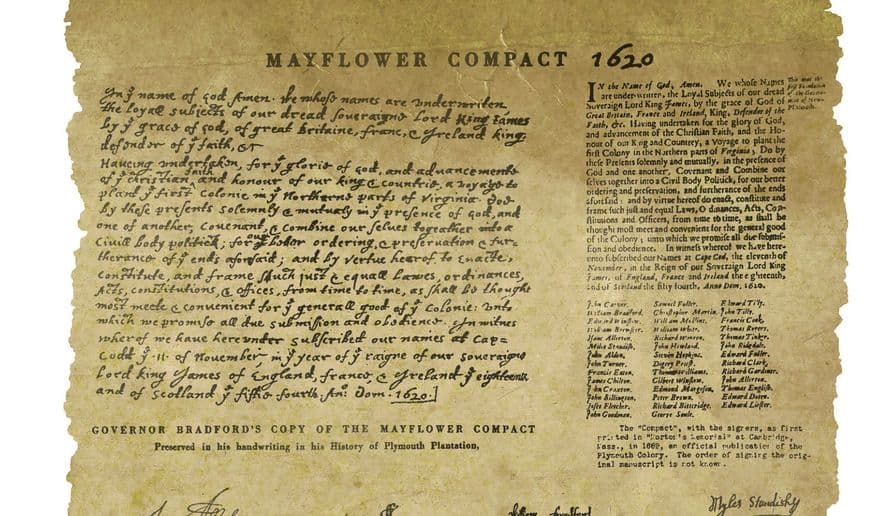 MAYFLOWER COMPACT 1620
In yͤ name of god Amen. We whose names are underwriten,
the loyall subjects of our dread soveraigne Lord King James
by yͤ grace of god, of great Britaine, franc, & Yreland king,
defender of yͤ faith, &c
Haveing undertaken, for yͤ glorie of god, and advancemente
of yͤ christian faith and honour of our king & countrie, a voyage to
plant yͤ first Colonie in yͤ Northerne parts of Virginia. Doe
by these presents solemnly & mutualy in yͤ presence of god, and
one of another, Covenant, & combine our selves togeather into a
Civill body politick; for our better ordering, & preservation & fur=
therance of yͤ ends aforesaid; and by vertue hearof to enacte,
constitute, and frame shuch just & equall Lawes, ordinances,
Acts, constitutions, & offices, from time to time, as shall be thought
most meete & convenient for yͤ generall good of yͤ Colonie: unto
which we promise all due submission and obedience. In witnes
wherof we have here under subscribed our names at Cap=
Codd yͤ ·11· of November, in yͤ year of yͤ raigne of our soveraigne
Lord king James of England, france, & Yreland yͤ eighteenth
and of Scotland yͤ fiftie fourth. Ano: Dom. 1620.]
GOVERNOR BRADFORD'S COPY OF THE MAYFLOWER COMPACT
Preserved in his handwriting in his History of Plymouth Plantation,
IN the Name of God, Amen. We whose Names
are under-written, the Loyal Subjects of our dread
Soveraign Lord King James, by the grace of God of
Great Britain, France and Ireland, King, Defender of the
Faith, &c. Having undertaken for the glory of God,
and advancement of the Christian Faith, and the Ho-
nour of our King and Countrey, a Voyage to plant the
first Colony in the Northern parts of Virginia; Do by
these Presents solemnly and mutually, in the presence of
God and one another, Covenant and Combine our
selves together into a Civil Body Politick, for our better
ordering and preservation, and furtherance of the ends
aforesaid: and by virtue hereof do enact, constitute and
frame such just and equal Laws, Ordinances, Acts, Con-
stitutions and Officers, from time to time, as shall be
thought most meet and convenient for the general good
of the Colony; unto which we promise all due submis-
sion and obedience. In witness whereof we have here-
unto subscribed our Names at Cape Cod, the eleventh of
November, in the Reign of our Soveraign Lord King
James, of England, France and Ireland the eighteenth,
and of Scotland the fifty fourth, Anno Dom. 1620.
This was the
first Foundation
of the Government
of New-
Plimouth.
John Carver. Samuel Fuller. Edward Tilly.
William Bradford. Christopher Martin. John Tilly.
Edward Winslow. William Mullins. Francis Cook.
William Brewster. William White. Thomas Rogers.
Isaac Allerton. Richard Warren. Thomas Tinker.
Miles Standish. John Howland. John Ridgdale.
John Alden. Steven Hopkins. Edward Fuller.
John Turner. Digery Priest. Richard Clark.
Francis Eaton. Thomas Williams. Richard Gardiner.
James Chilton. Gilbert Winslow. John Allerton.
John Craxton. Edmund Margesson. Thomas English.
John Billington. Peter Brown. Edward Doten.
Joses Fletcher. Richard Bitteridge. Edward Liester.
John Goodman. George Soule.
The "Compact", with the signers, as first
printed in "Morton's Memorial" at Cambridge,
Mass., in 1669, an official publication of the
Plymouth Colony. The order of signing the orig-
inal manuscript is not known.
Myles Standish